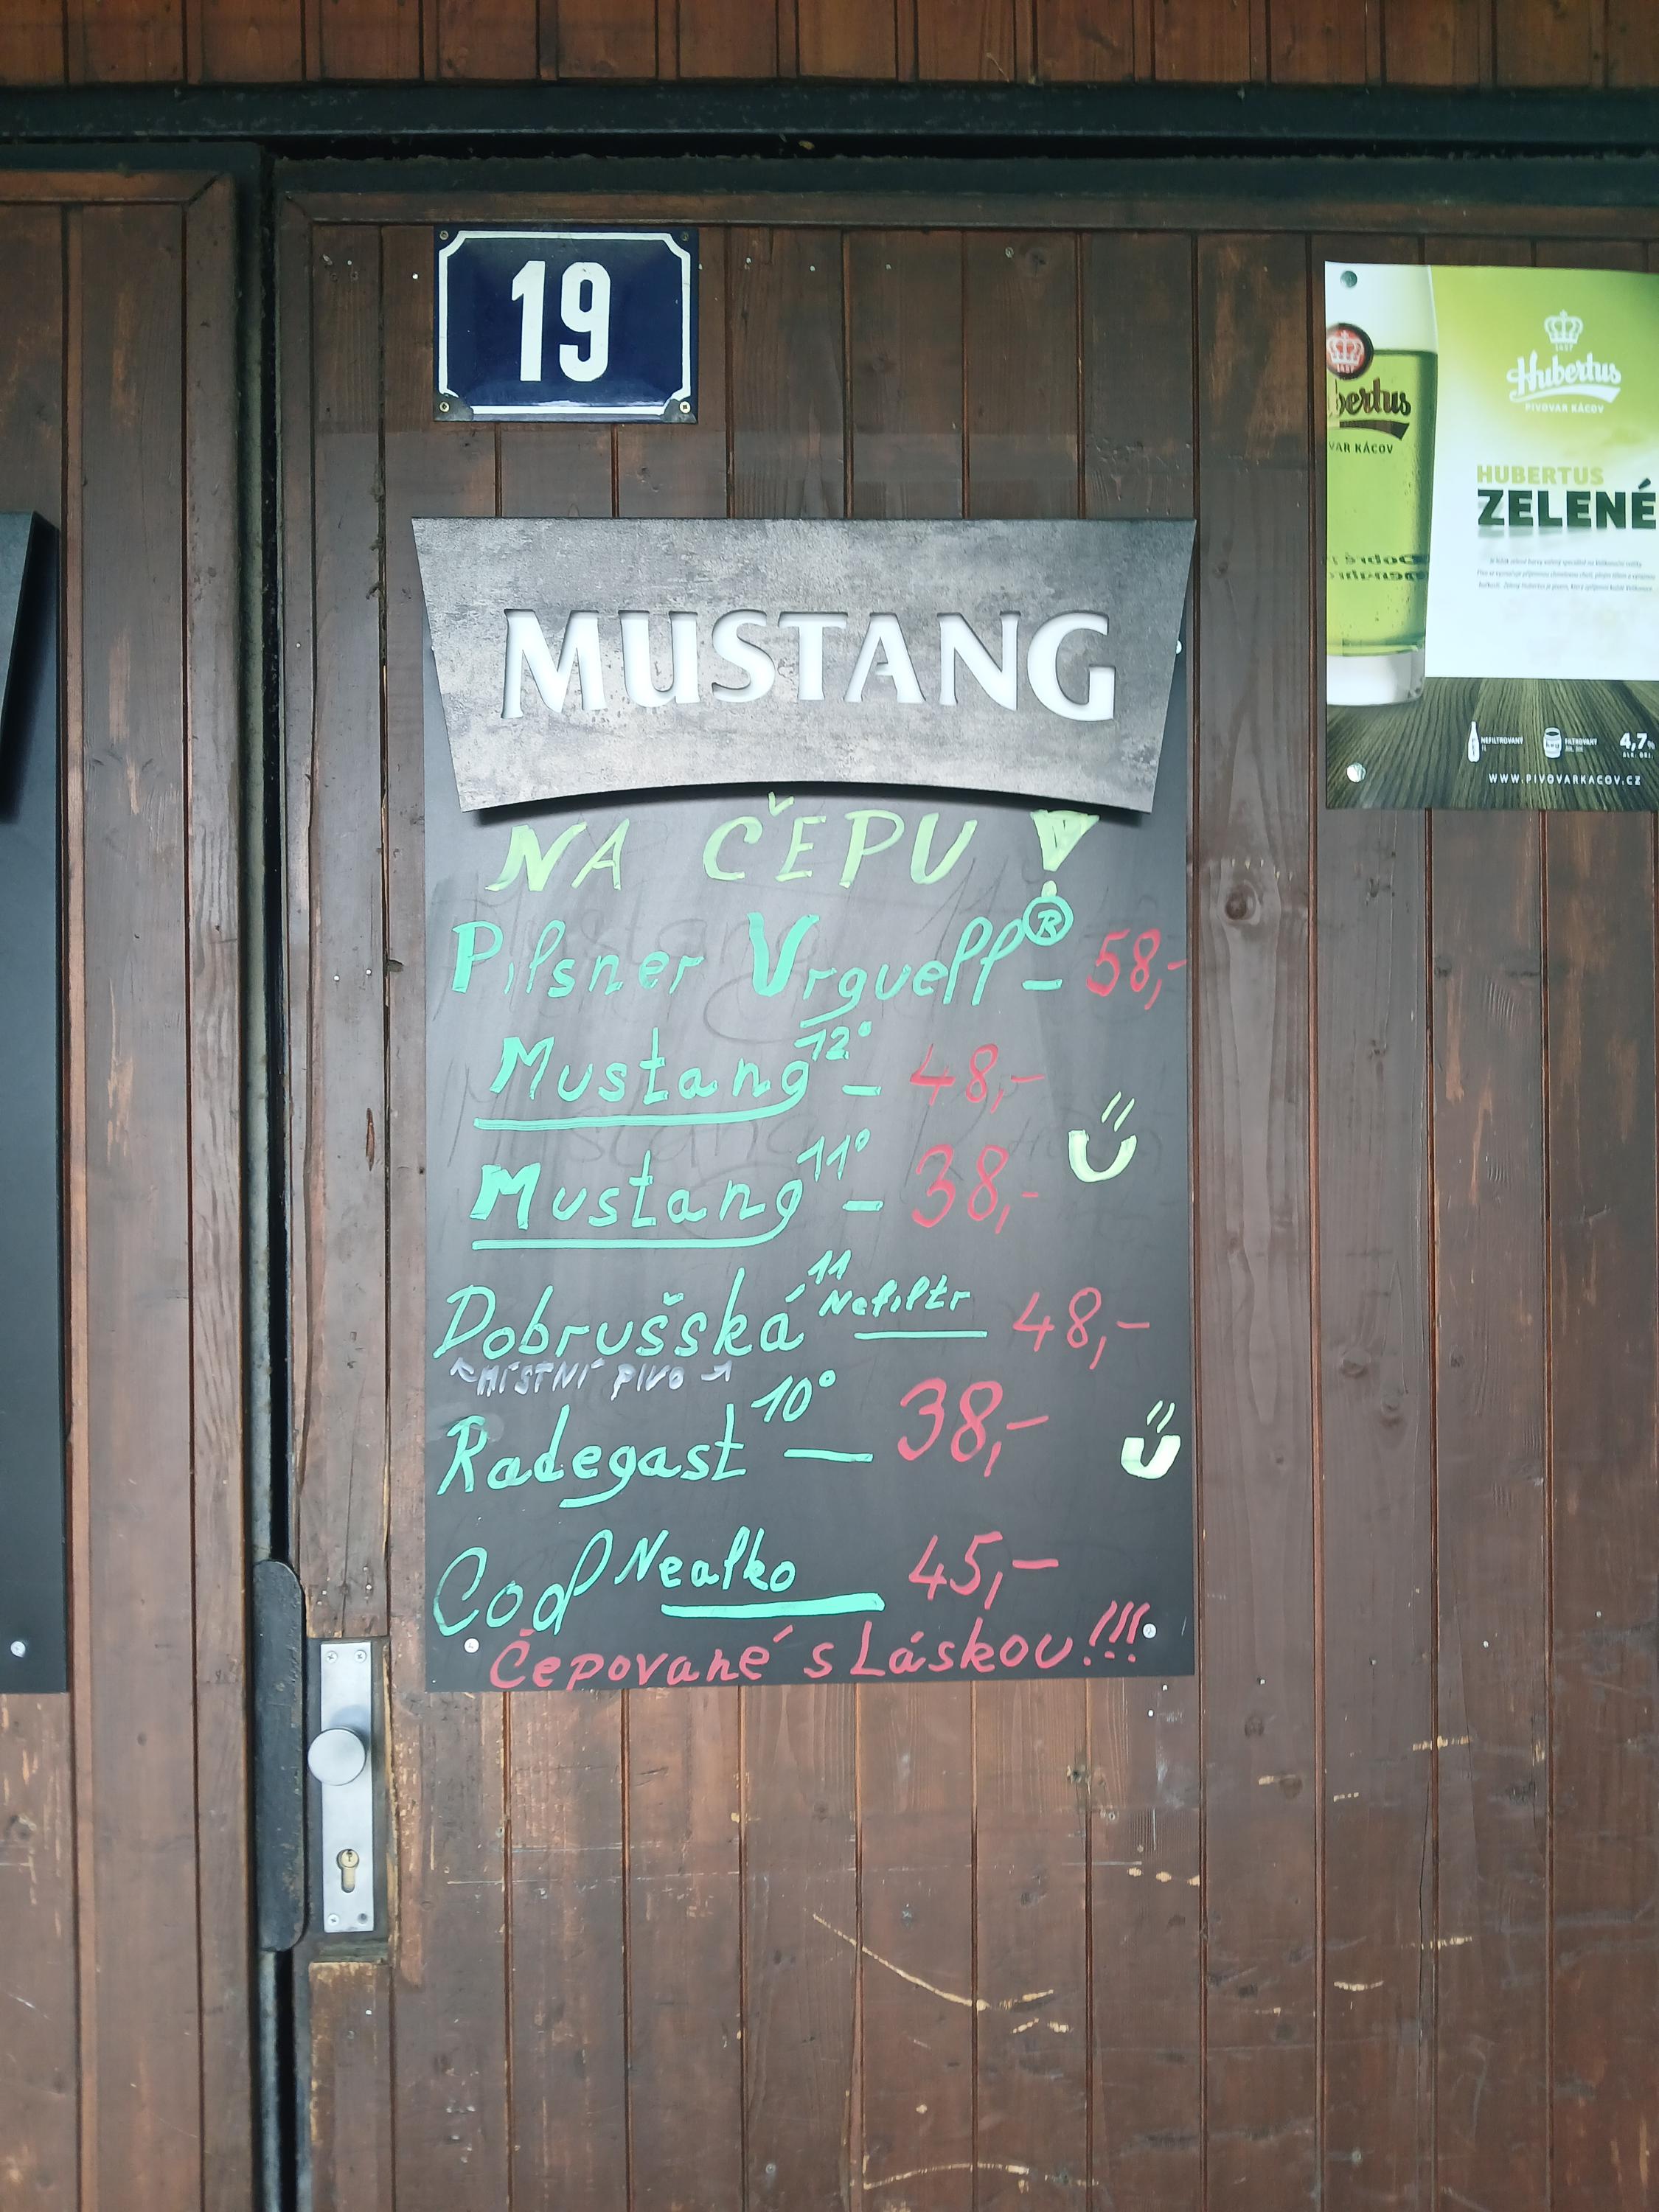 19
MUSTANG
NA ČEPU!
Pilsner Urquell® – 58,-
Mustang 12° – 48,-
Mustang 11° – 38,-
Dobrušská 11 Nefiltr 48,-
MÍSTNÍ PIVO
Radegast 10° — 38,-
Cool Nealko 45,-
Čepované s Láskou!!!
1457
bertus
VAR KÁCOV
1457
Hubertus
PIVOVAR KÁCOV
HUBERTUS
ZELENÉ
NEFILTROVANÝ
FILTROVANÝ
4,7%
WWW.PIVOVARKACOV.CZ